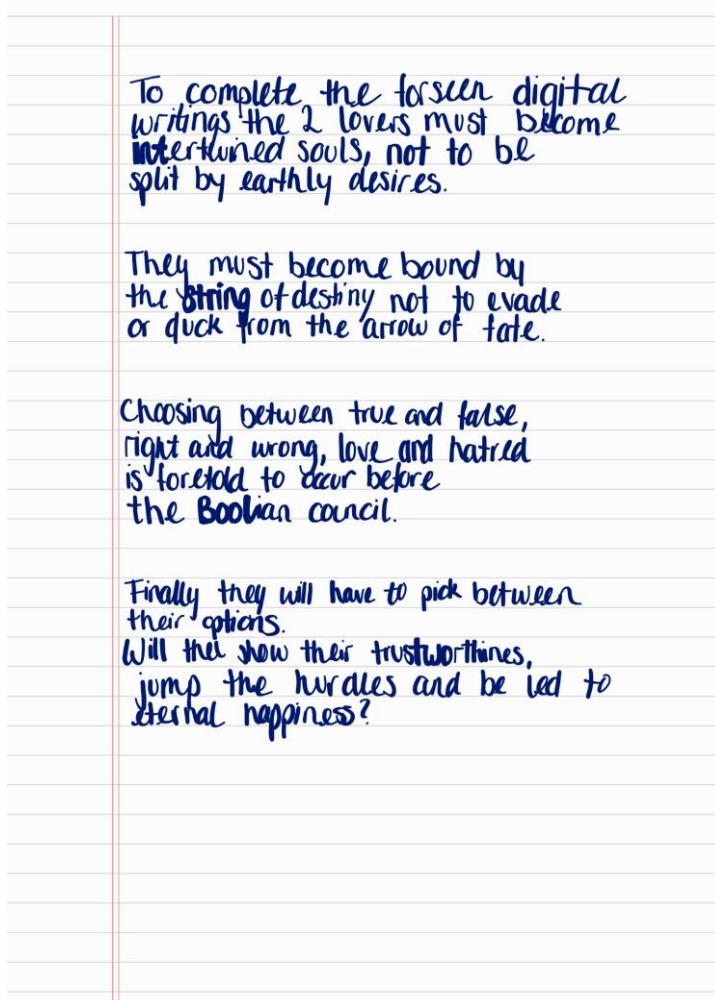 To complete the forseen digital
writings the 2 lovers must become
intertwined souls, not to be
split by earthly desires.
They must become bound by
the string of destiny not to evade
or duck from the arrow of fate.
Choosing between true and false,
right and wrong, love and hatred
is foretold to occur before
the Boolian council.
Finally they will have to pick between
their options.
Will thei show their trustworthines,
jump the hurdles and be led to
eternal happiness?